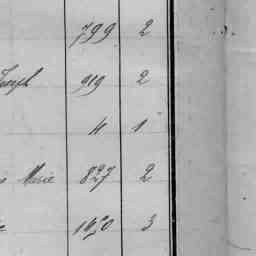 799 2
Joseph 919 2
11 1
Marie 827 2
3